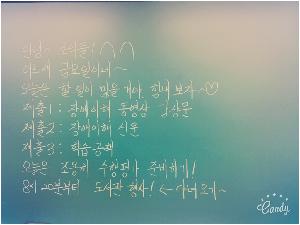 안녕~ 2의들! ^^
어느새 금요일이네~
오늘은 할 일이 많을 거야. 힘내 보자~♡
제출1 : 장애이해 동영상 감상문
제출2 : 장애이해 신문
제출3 : 학습공책
오늘은 조용히 수행평가 준비하기!
8시 20분부터 도서관 행사! ← 다녀오기~
Candy